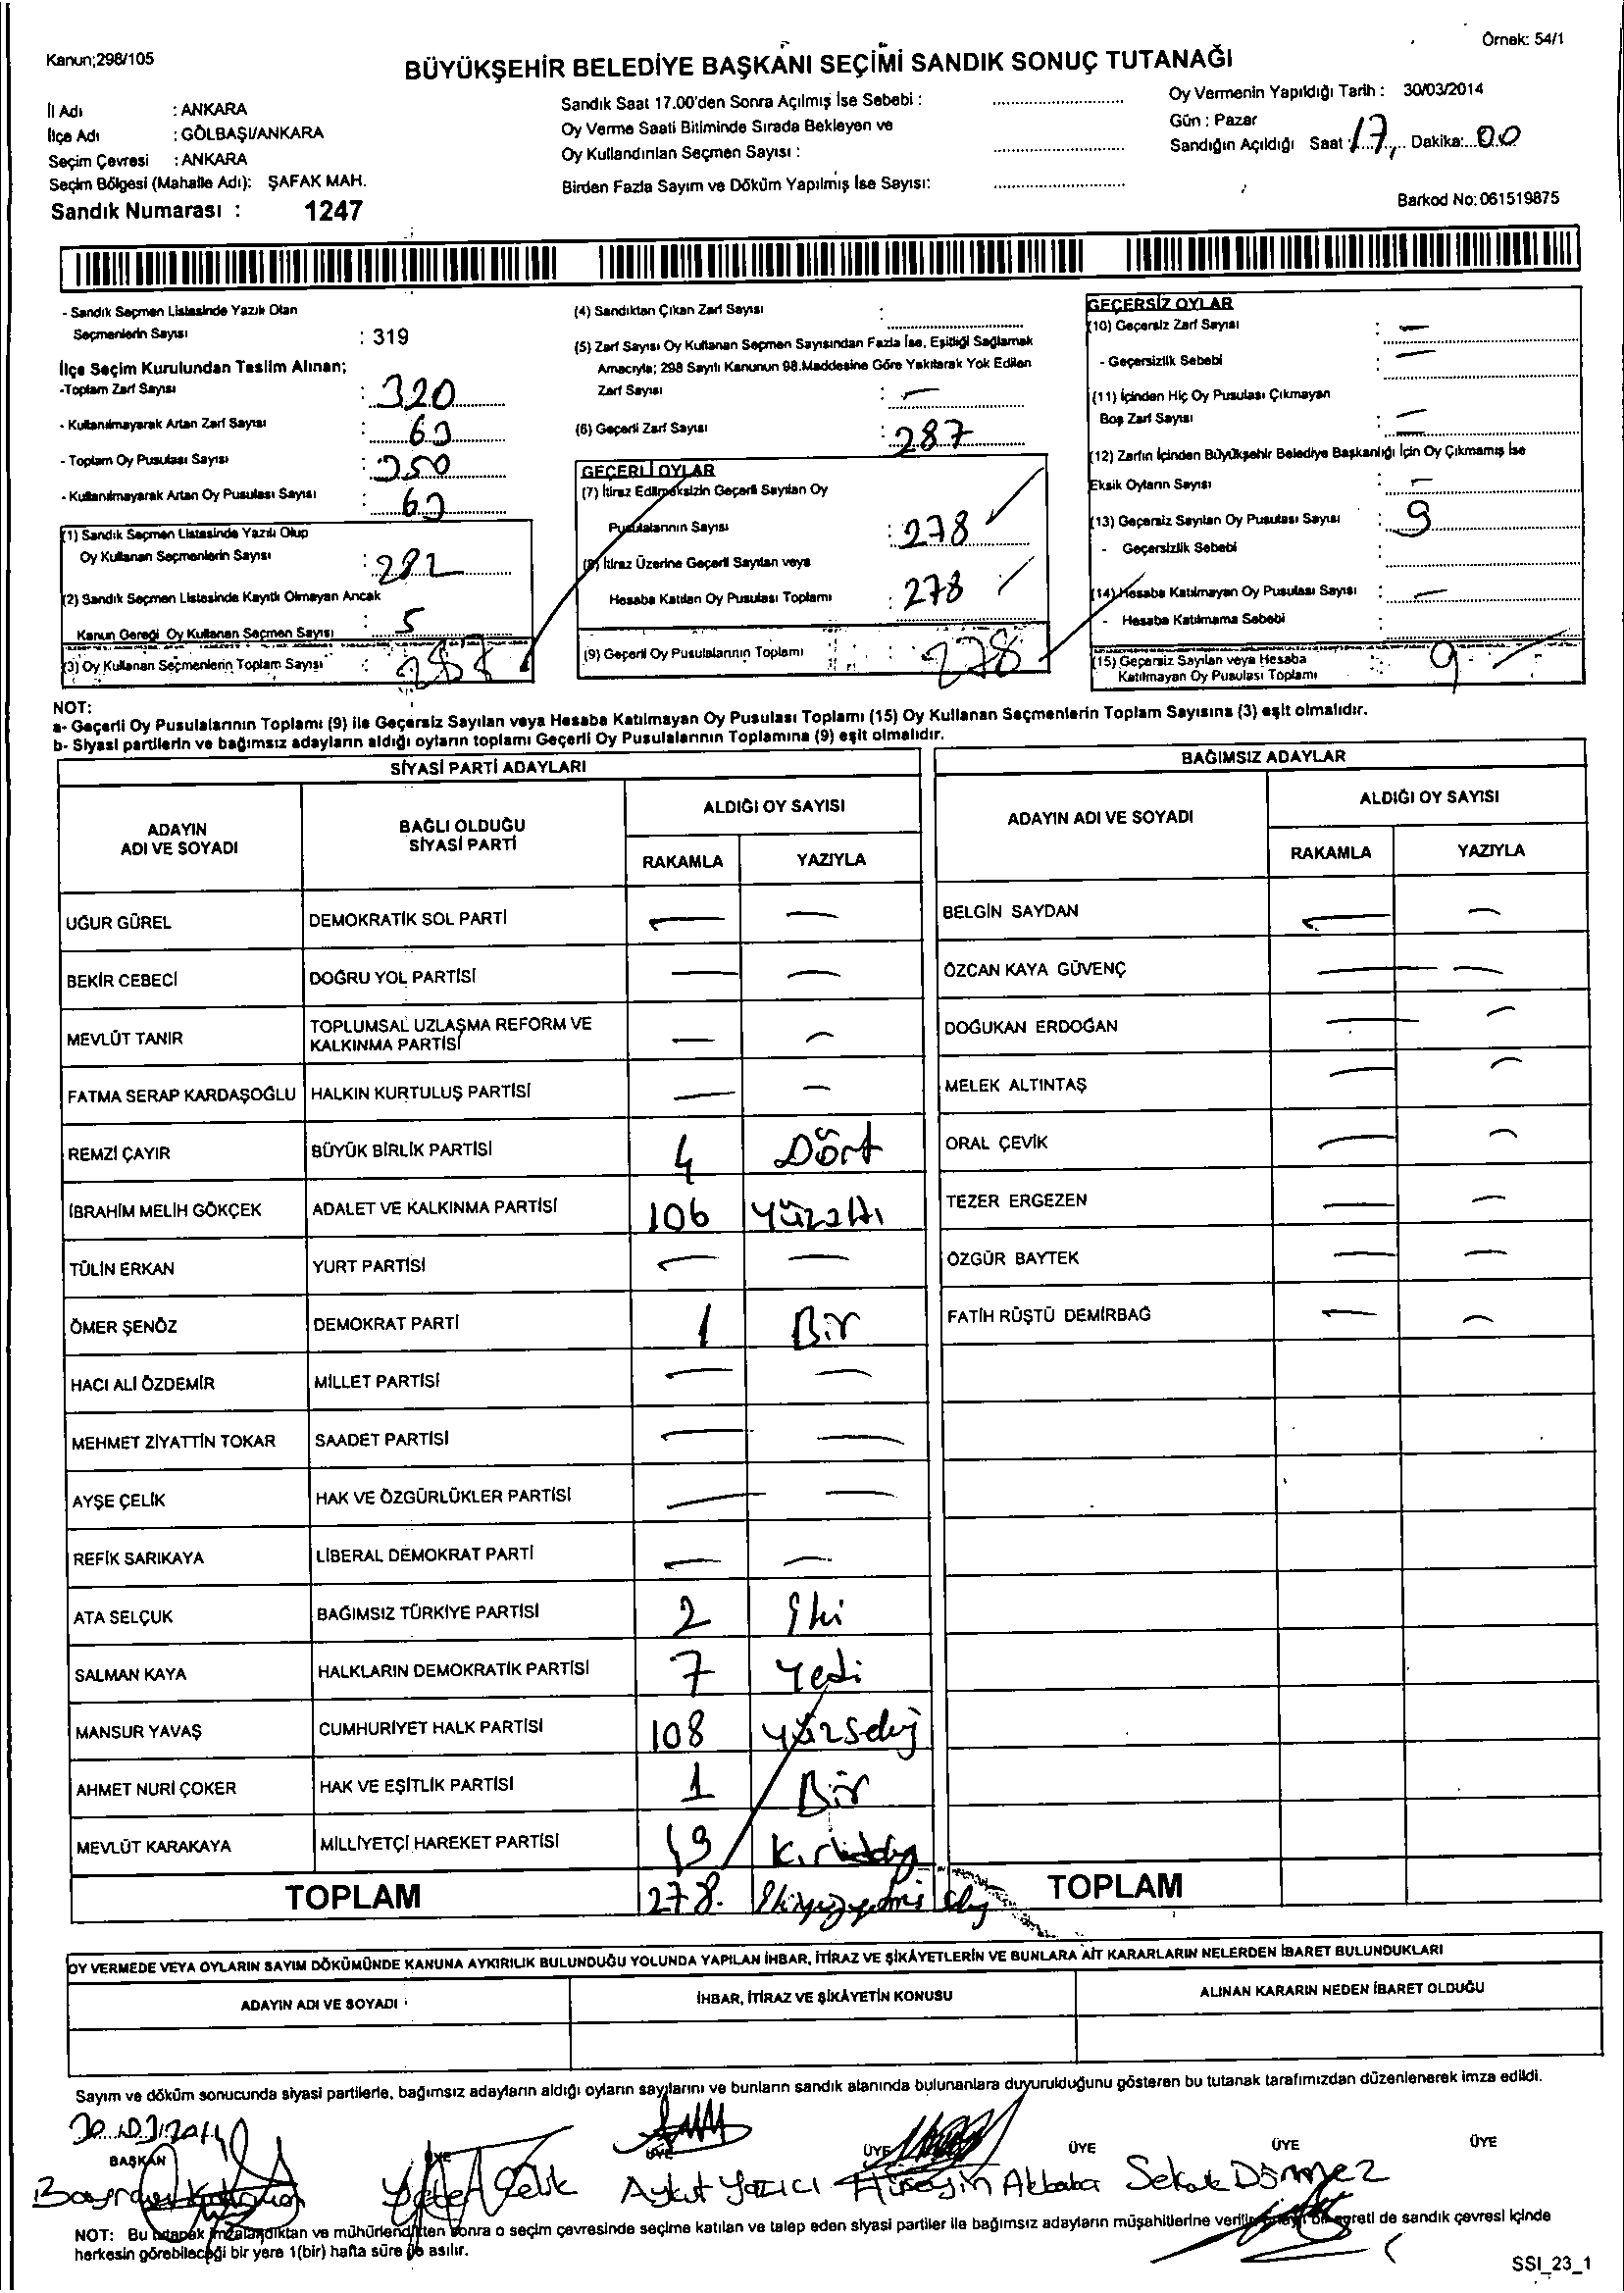 Kanun;298/105
Örnek: 54/1
BÜYÜKŞEHİR BELEDİYE BAŞKANI SEÇİMİ SANDIK SONUÇ TUTANAĞI
İl Adı : ANKARA
İlçe Adı : GÖLBAŞI/ANKARA
Seçim Çevresi : ANKARA
Seçim Bölgesi (Mahalle Adı): ŞAFAK MAH.
Sandık Numarası : 1247
Sandık Saat 17.00'den Sonra Açılmış İse Sebebi :
Oy Verme Saati Bitiminde Sırada Bekleyen ve
Oy Kullandırılan Seçmen Sayısı :
Birden Fazla Sayım ve Döküm Yapılmış İse Sayısı:
Oy Vermenin Yapıldığı Tarih : 30/03/2014
Gün : Pazar
Sandığın Açıldığı Saat : 17, Dakika: 00
Barkod No: 061519875
- Sandık Seçmen Listesinde Yazılı Olan
Seçmenlerin Sayısı : 319
İlçe Seçim Kurulundan Teslim Alınan;
-Toplam Zarf Sayısı : 320
- Kullanılmayarak Artan Zarf Sayısı : 63
- Toplam Oy Pusulası Sayısı : 350
- Kullanılmayarak Artan Oy Pusulası Sayısı : 63
(1) Sandık Seçmen Listesinde Yazılı Olup
Oy Kullanan Seçmenlerin Sayısı : 282
(2) Sandık Seçmen Listesinde Kayıtlı Olmayan Ancak
Kanun Gereği Oy Kullanan Seçmen Sayısı : 5
(3) Oy Kullanan Seçmenlerin Toplam Sayısı :
(4) Sandıktan Çıkan Zarf Sayısı :
(5) Zarf Sayısı Oy Kullanan Seçmen Sayısından Fazla İse, Eşitliği Sağlamak
Amacıyla; 298 Sayılı Kanunun 98.Maddesine Göre Yakılarak Yok Edilen
Zarf Sayısı : —
(6) Geçerli Zarf Sayısı : 287
GEÇERLİ OYLAR
(7) İtiraz Edilmeksizin Geçerli Sayılan Oy
Pusulalarının Sayısı : 278
(8) İtiraz Üzerine Geçerli Sayılan veya
Hesaba Katılan Oy Pusulası Toplamı : 278
(9) Geçerli Oy Pusulalarının Toplamı : 278
GEÇERSİZ OYLAR
(10) Geçersiz Zarf Sayısı : —
- Geçersizlik Sebebi : —
(11) İçinden Hiç Oy Pusulası Çıkmayan
Boş Zarf Sayısı : —
(12) Zarfın İçinden Büyükşehir Belediye Başkanlığı İçin Oy Çıkmamış İse
Eksik Oyların Sayısı : —
(13) Geçersiz Sayılan Oy Pusulası Sayısı : 9
- Geçersizlik Sebebi :
(14) Hesaba Katılmayan Oy Pusulası Sayısı : —
- Hesaba Katılmama Sebebi :
(15) Geçersiz Sayılan veya Hesaba
Katılmayan Oy Pusulası Toplamı : 9
NOT:
a- Geçerli Oy Pusulalarının Toplamı (9) ile Geçersiz Sayılan veya Hesaba Katılmayan Oy Pusulası Toplamı (15) Oy Kullanan Seçmenlerin Toplam Sayısına (3) eşit olmalıdır.
b- Siyasi partilerin ve bağımsız adayların aldığı oyların toplamı Geçerli Oy Pusulalarının Toplamına (9) eşit olmalıdır.
SİYASİ PARTİ ADAYLARI
ADAYIN ADI VE SOYADI
BAĞLI OLDUĞU SİYASİ PARTİ
ALDIĞI OY SAYISI
RAKAMLA YAZIYLA
UĞUR GÜREL DEMOKRATİK SOL PARTİ — —
BEKİR CEBECİ DOĞRU YOL PARTİSİ — —
MEVLÜT TANIR TOPLUMSAL UZLAŞMA REFORM VE KALKINMA PARTİSİ — —
FATMA SERAP KARDAŞOĞLU HALKIN KURTULUŞ PARTİSİ — —
REMZİ ÇAYIR BÜYÜK BİRLİK PARTİSİ 4 Dört
İBRAHİM MELİH GÖKÇEK ADALET VE KALKINMA PARTİSİ 106 Yüzaltı
TÜLİN ERKAN YURT PARTİSİ — —
ÖMER ŞENÖZ DEMOKRAT PARTİ 1 Bir
HACI ALİ ÖZDEMİR MİLLET PARTİSİ — —
MEHMET ZİYATTİN TOKAR SAADET PARTİSİ — —
AYŞE ÇELİK HAK VE ÖZGÜRLÜKLER PARTİSİ — —
REFİK SARIKAYA LİBERAL DEMOKRAT PARTİ — —
ATA SELÇUK BAĞIMSIZ TÜRKİYE PARTİSİ 2 İki
SALMAN KAYA HALKLARIN DEMOKRATİK PARTİSİ 7 Yedi
MANSUR YAVAŞ CUMHURİYET HALK PARTİSİ 108 Yüzsekiz
AHMET NURİ ÇOKER HAK VE EŞİTLİK PARTİSİ 1 Bir
MEVLÜT KARAKAYA MİLLİYETÇİ HAREKET PARTİSİ
TOPLAM 278.
BAĞIMSIZ ADAYLAR
ADAYIN ADI VE SOYADI
ALDIĞI OY SAYISI
RAKAMLA YAZIYLA
BELGİN SAYDAN — —
ÖZCAN KAYA GÜVENÇ — —
DOĞUKAN ERDOĞAN — —
MELEK ALTINTAŞ — —
ORAL ÇEVİK — —
TEZER ERGEZEN — —
ÖZGÜR BAYTEK — —
FATİH RÜŞTÜ DEMİRBAĞ — —
TOPLAM
OY VERMEDE VEYA OYLARIN SAYIM DÖKÜMÜNDE KANUNA AYKIRILIK BULUNDUĞU YOLUNDA YAPILAN İHBAR, İTİRAZ VE ŞİKÂYETLERİN VE BUNLARA AİT KARARLARIN NELERDEN İBARET BULUNDUKLARI
ADAYIN ADI VE SOYADI
İHBAR, İTİRAZ VE ŞİKÂYETİN KONUSU
ALINAN KARARIN NEDEN İBARET OLDUĞU
Sayım ve döküm sonucunda siyasi partilerle, bağımsız adayların aldığı oyların sayılarını ve bunların sandık alanında bulunanlara duyurulduğunu gösteren bu tutanak tarafımızdan düzenlenerek imza edildi.
30.03.2014
BAŞKAN ÜYE ÜYE ÜYE ÜYE ÜYE ÜYE
Çelik Aykut Yazıcı Hüseyin Akbaba Dönmez
NOT: Bu tutanak imzalandıktan ve mühürlendikten sonra o seçim çevresinde seçime katılan ve talep eden siyasi partiler ile bağımsız adayların müşahitlerine verilir, bir sureti de sandık çevresi içinde
herkesin görebileceği bir yere 1(bir) hafta süre ile asılır.
SSI_23_1